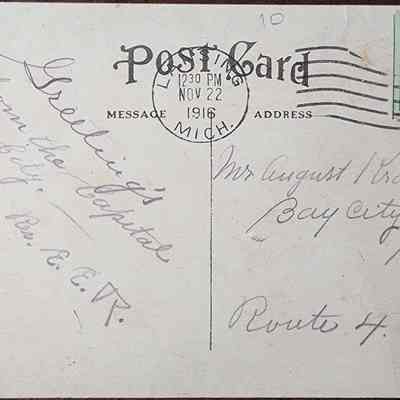 10
Post Card
LANSING
12:30 PM
NOV 22
1916
MICH.
MESSAGE
ADDRESS
Greeting's
from the Capital
City.
Rev. E. E. R.
Mr August
Bay City
Route 4.